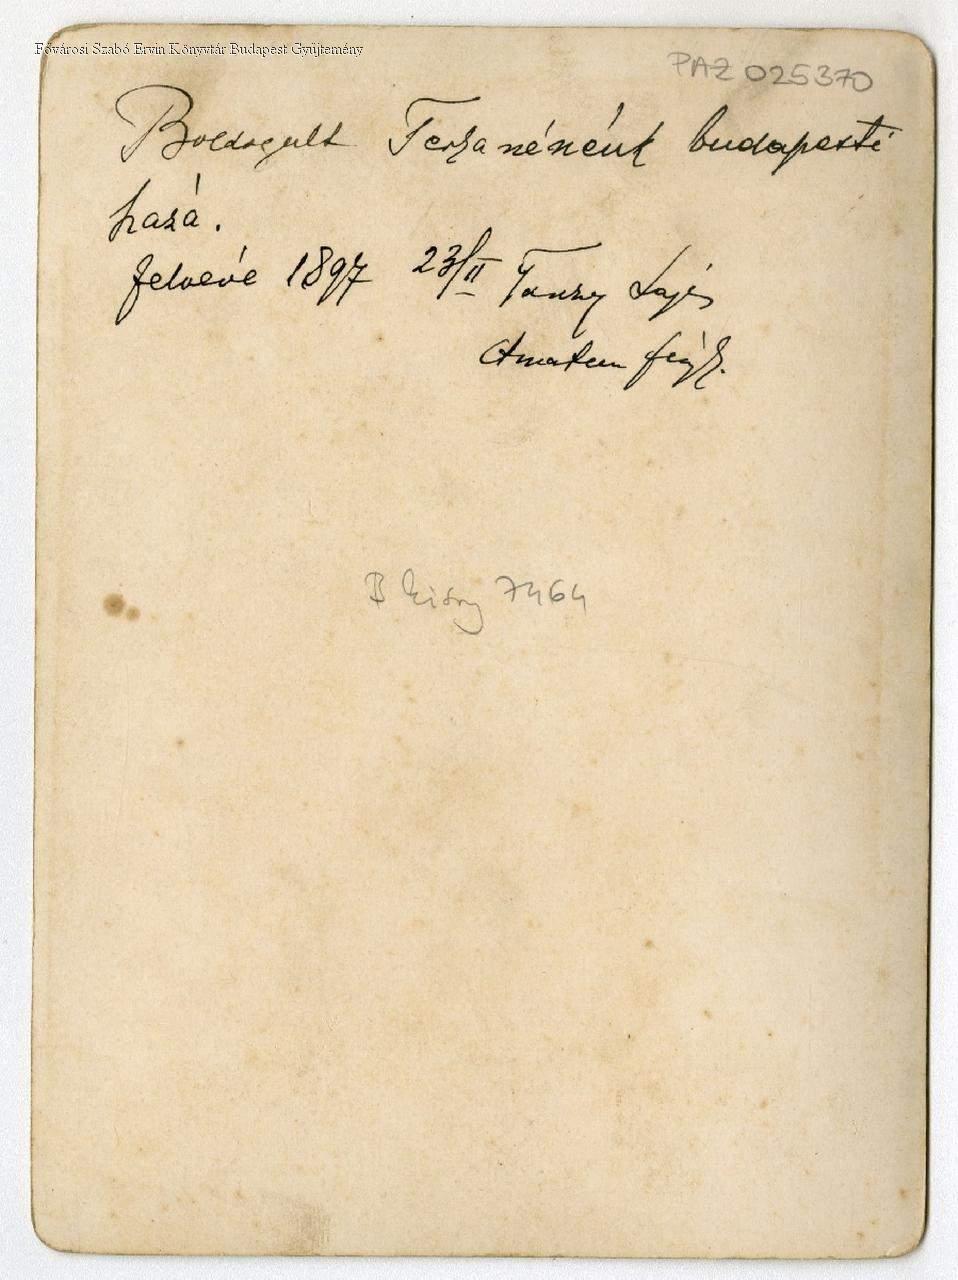 Fővárosi Szabó Ervin Könyvtár Budapest Gyűjtemény
PAZ 025370
Boldogult Terza nénénk budapesti
hazá.
felvéve 1897 23/II Lajos
Amateur
B 7464